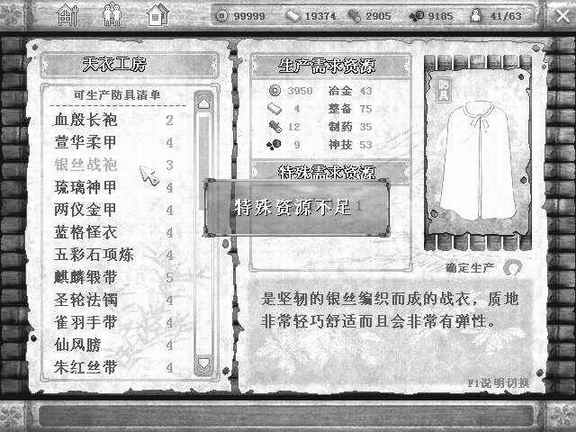 99999 19374 2905 9185 41/63
天衣工房
可生产防具清单
血殷长袍 2
萱华柔甲 4
银丝战袍 3
琉璃神甲 4
两仪金甲 4
蓝格怪衣 4
五彩石项炼 4
麒麟缎带 5
圣轮法镯 4
雀羽手带 4
仙风膀 4
朱红丝带 4
生产需求资源
3950 冶金 43
4 整备 75
12 制药 35
9 神技 53
特殊需求资源
特殊资源不足
1
防具
确定生产
是坚韧的银丝编织而成的战衣，质地
非常轻巧舒适而且会非常有弹性。
F1说明切换